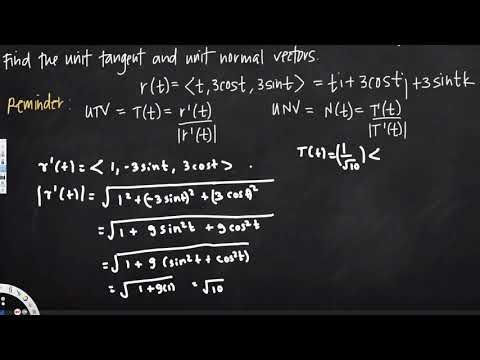 Find the unit tangent and unit normal vectors.
r(t) = <t, 3cost, 3sint> = ti + 3costj + 3sintk
Reminder: UTV = T(t) = r'(t) / |r'(t)| UNV = N(t) = T'(t) / |T'(t)|
r'(t) = < 1, -3sint, 3cost > .
T(t) = (1/√10) <
|r'(t)| = √(1² + (-3sint)² + (3cost)²)
= √(1 + 9sin²t + 9cos²t)
= √(1 + 9 (sin²t + cos²t))
= √(1+9(1)) = √10